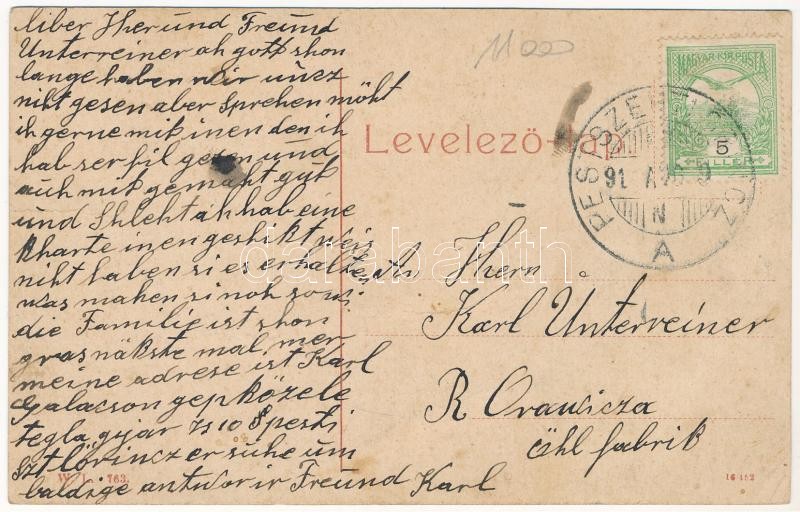 liber Hher und Freund
Unterreiner ah gott shon
lange haben wir uncz
niht gesen aber Sprehen möht
ih gerne mit inen den ih
hab ser fil gesen und
auh mit gemaht gut
und Shleht ah hab eine
kharte inen geshikt weis
niht haben si es erhalten
was mahen si noh so wi
die Familie ist shon
gros näkste mal mer
meine adrese ist Karl
Galacson gep közele
tegla gyár 7s 10 Spesti
Szt Lőrincz er suhe um
baldige antwor ir Freund Karl
11000
Levelező-Lap.
MAGYAR KIR. POSTA
5
FILLÉR
PESTSZE
CZ
A
An Hhern
Karl Unterreiner
R Orawicza
Öhl fabrik
W. L. 763.
16 152
darabanth